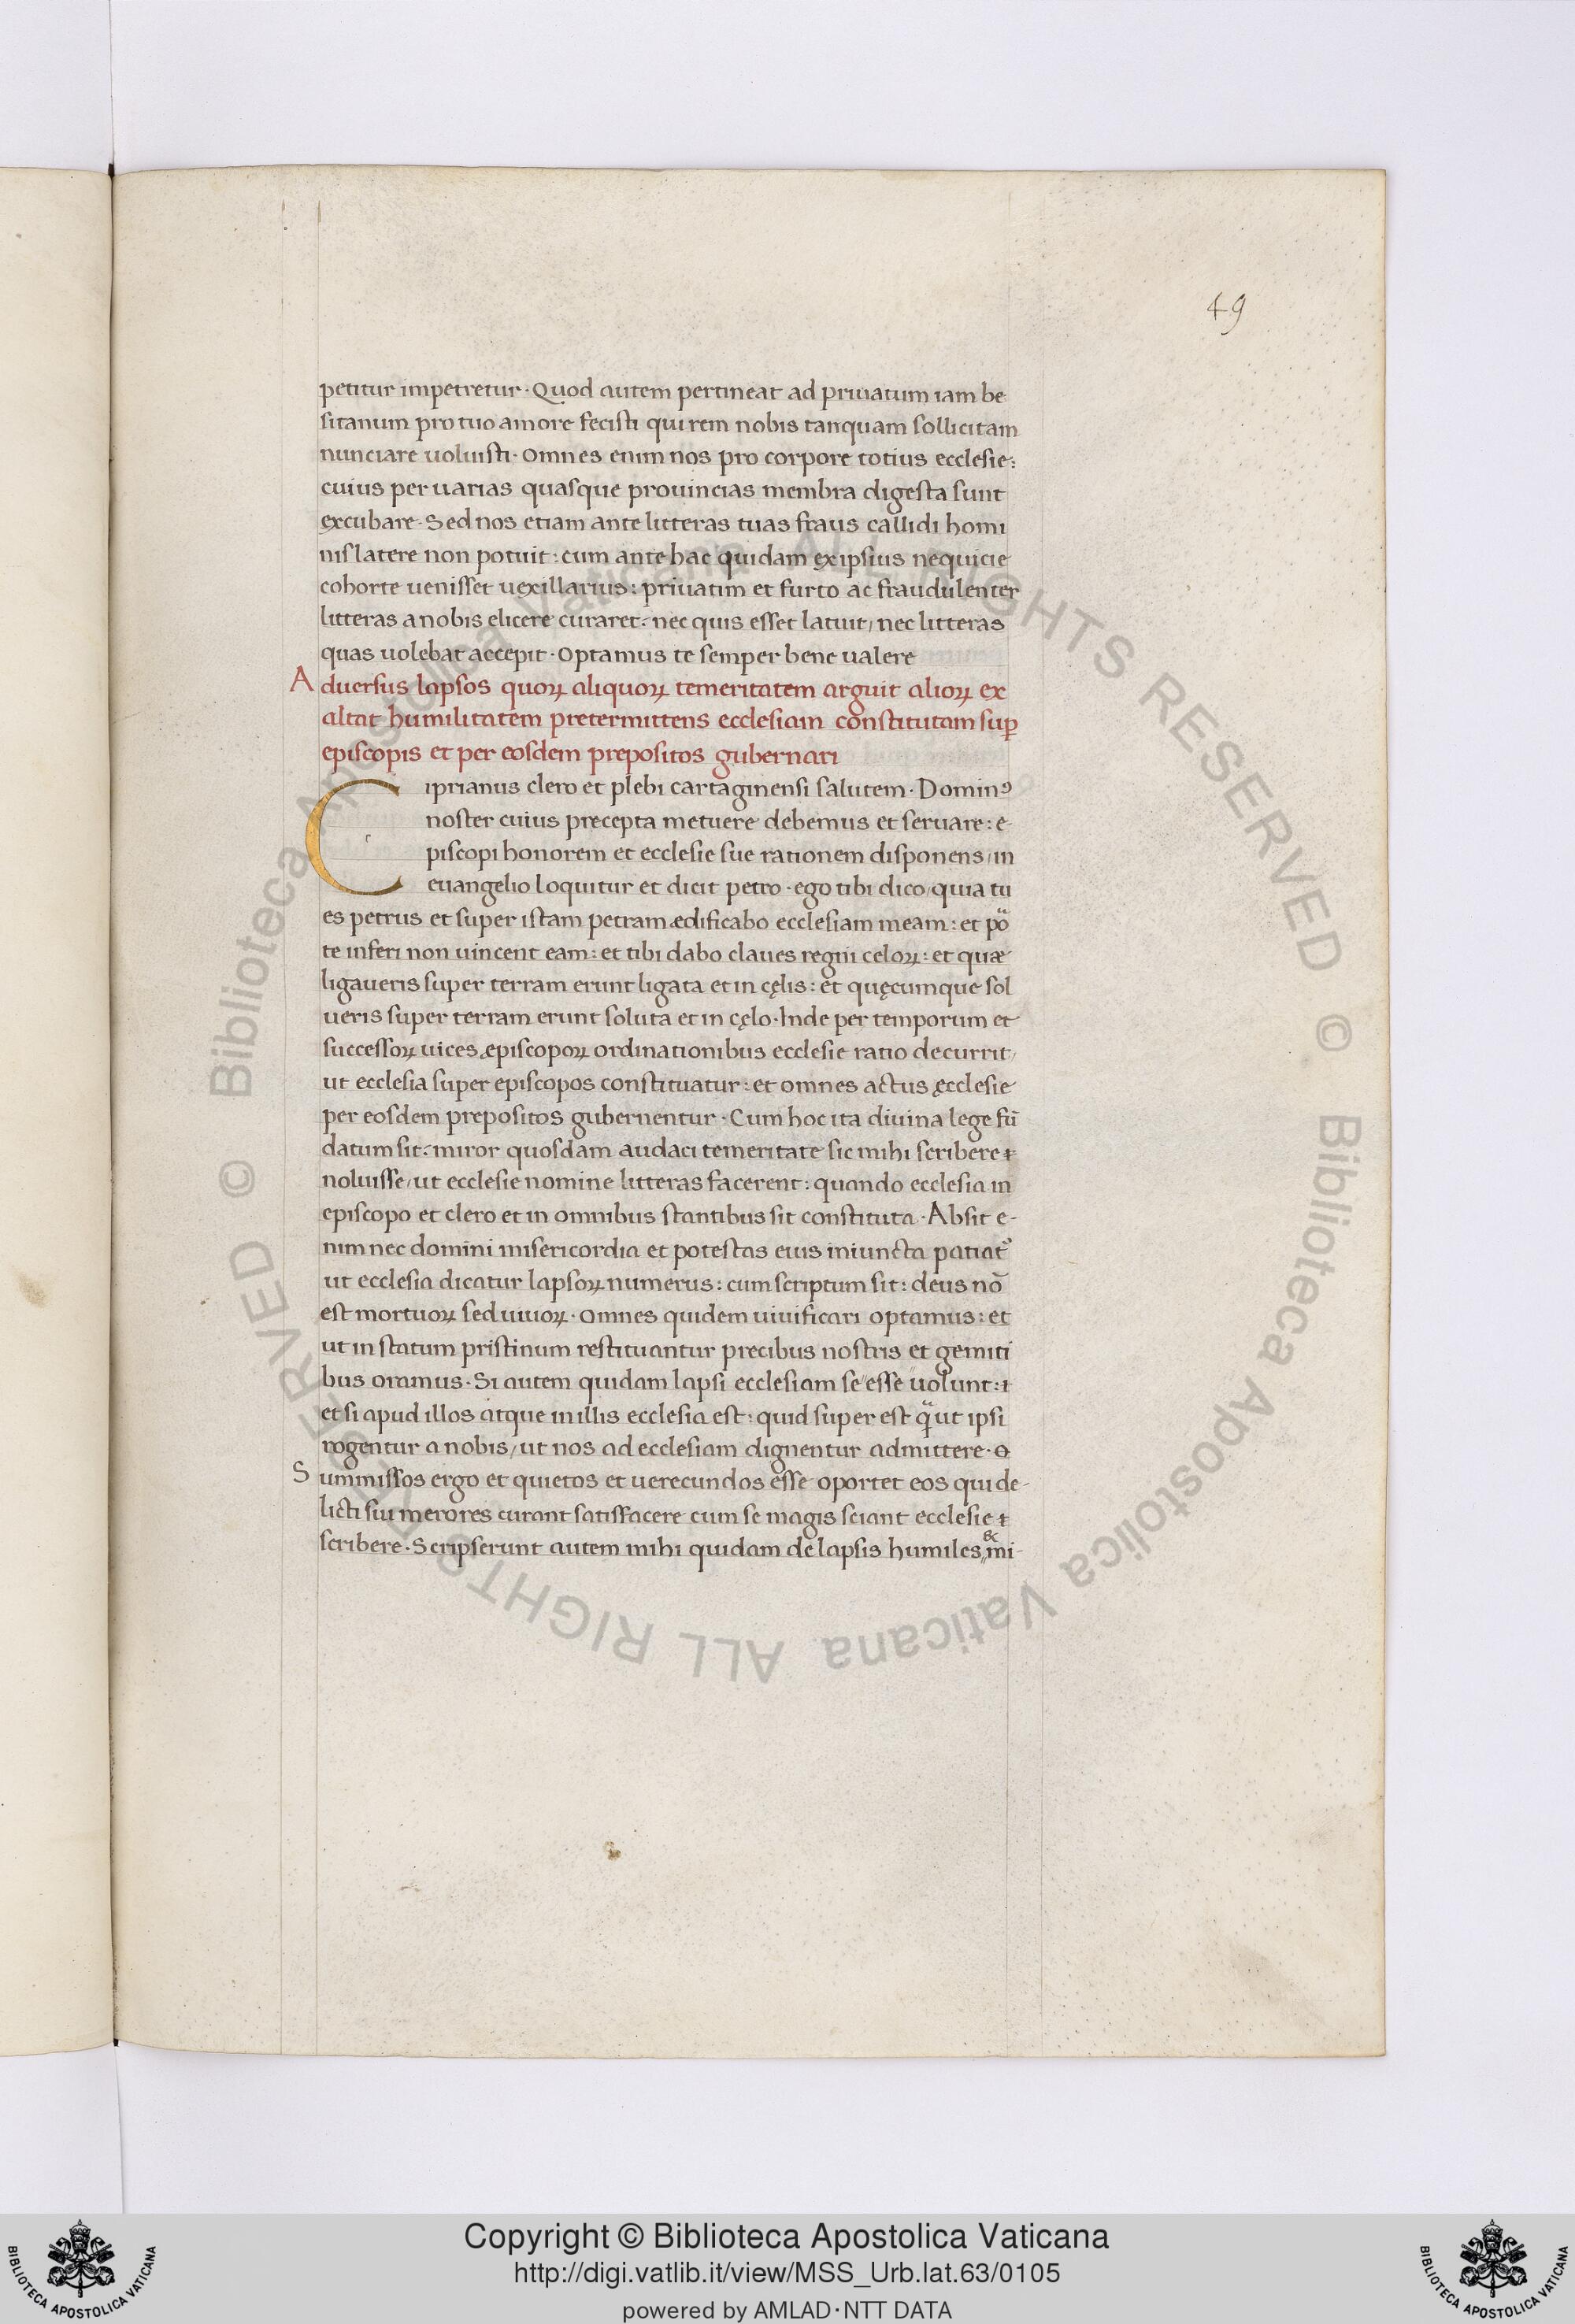 49
petitur impetretur · Quod autem pertineat ad priuatum iam be
sitanum pro tuo amore fecisti qui rem nobis tanquam sollicitam
nunciare uoluisti · Omnes enim nos pro corpore totius ecclesie :
cuius per uarias quasque prouincias membra digesta sunt
excubare · Sed nos etiam ante litteras tuas fraus callidi homi
nis latere non potuit : cum ante hac quidam ex ipsius nequicie
cohorte uenisset uexillarius : priuatim et furto ac fraudulenter
litteras a nobis elicere curaret : nec quis esset latuit / nec litteras
quas uolebat accepit · Optamus te semper bene ualere
Aduersus lapsos quoꝝ aliquoꝝ temeritatem arguit alioꝝ ex
altat humilitatem pretermittens ecclesiam constitutam suꝑ
episcopis et per eosdem prepositos gubernari
Ciprianus clero et plebi cartaginensi salutem · Dominꝰ
noster cuius precepta metuere debemus et seruare : e
piscopi honorem et ecclesie sue rationem disponens / in
euangelio loquitur et dicit petro · ego tibi dico / quia tu
es petrus et super istam petram ædificabo ecclesiam meam : et poͣ
te inferi non uincent eam : et tibi dabo claues regni celoꝝ : et quæ
ligaueris super terram erunt ligata et in cęlis : et quęcumque sol
ueris super terram erunt soluta et in cęlo · Inde per temporum et
successoꝝ uices ępiscopoꝝ ordinationibus ecclesie ratio decurrit /
ut ecclesia super episcopos constituatur : et omnes actus ęcclesie
per eosdem prepositos gubernentur · Cum hoc ita diuina lege fū
datum sit : miror quosdam audaci temeritate sic mihi scribere
noluisse / ut ecclesie nomine litteras facerent : quando ecclesia in
episcopo et clero et in omnibus stantibus sit constituta · Absit e-
nim nec domini misericordia et potestas eius iniuncta patiat᷑
ut ecclesia dicatur lapsoꝝ numerus : cum scriptum sit : deus nō
est mortuoꝝ sed uiuoꝝ · Omnes quidem uiuificari optamus : et
ut in statum pristinum restituantur precibus nostris et gemiti
bus oramus · Si autem quidam lapsi ecclesiam se esse uolunt :
et si apud illos atque in illis ecclesia est : quid super est qͣ ut ipsi
rogentur a nobis / ut nos ad ecclesiam dignentur admittere ·
Summissos ergo et quietos et uerecundos esse oportet eos qui de-
licti sui merores curant satisfacere cum se magis sciant ecclesie
scribere · Scripserunt autem mihi quidam de lapsis humiles & mi-
© Biblioteca Apostolica Vaticana ALL RIGHTS RESERVED © Biblioteca Apostolica Vaticana ALL RIGHTS RESERVED
Copyright © Biblioteca Apostolica Vaticana
http://digi.vatlib.it/view/MSS_Urb.lat.63/0105
powered by AMLAD·NTT DATA
BIBLIOTECA APOSTOLICA VATICANA
BIBLIOTECA APOSTOLICA VATICANA